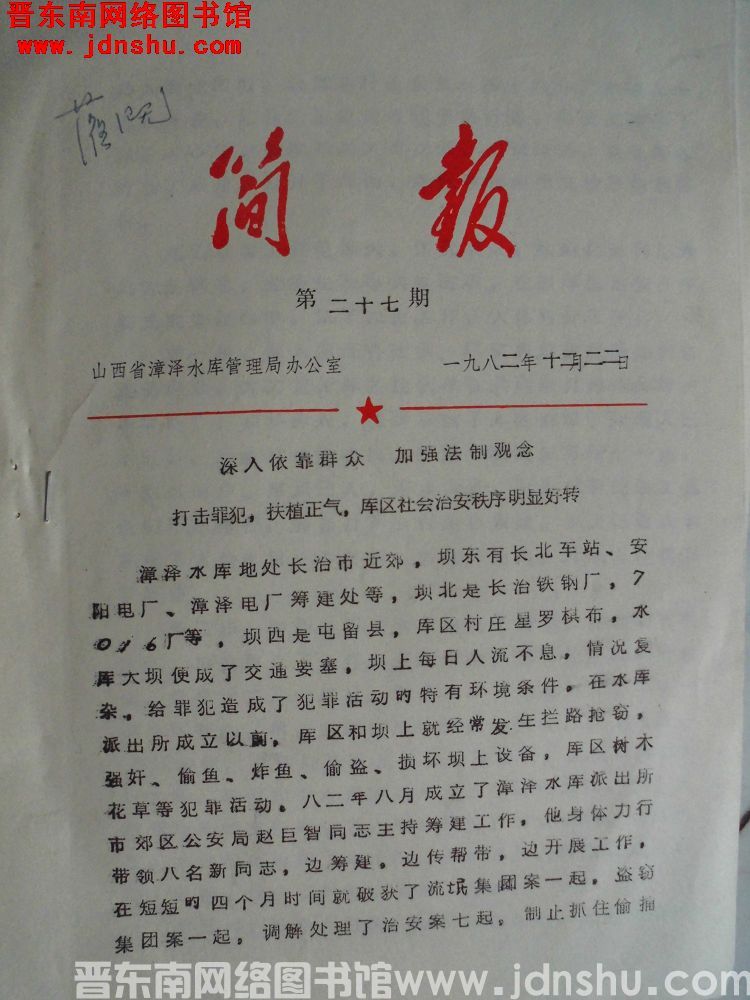 晋东南网络图书馆
www.jdnshu.com
简报
第二十七期
山西省漳泽水库管理局办公室 一九八二年十二月二二日
深入依靠群众 加强法制观念
打击罪犯，扶植正气，库区社会治安秩序明显好转
漳泽水库地处长治市近郊，坝东有长北车站、安
阳电厂、漳泽电厂筹建处等，坝北是长治铁钢厂，7
016厂等，坝西是屯留县，库区村庄星罗棋布，水
库大坝便成了交通要塞，坝上每日人流不息，情况复
杂。给罪犯造成了犯罪活动的特有环境条件。在水库
派出所成立以前，库区和坝上就经常发生拦路抢窃，
强奸、偷鱼、炸鱼、偷盗、损坏坝上设备，库区树木
花草等犯罪活动。八二年八月成立了漳泽水库派出所
市郊区公安局赵巨智同志主持筹建工作，他身体力行
带领八名新同志，边筹建，边传帮带，边开展工作，
在短短的四个月时间就破获了流氓集团案一起，盗窃
集团案一起，调解处理了治安案七起。制止抓住偷捕
晋东南网络图书馆www.jdnshu.com